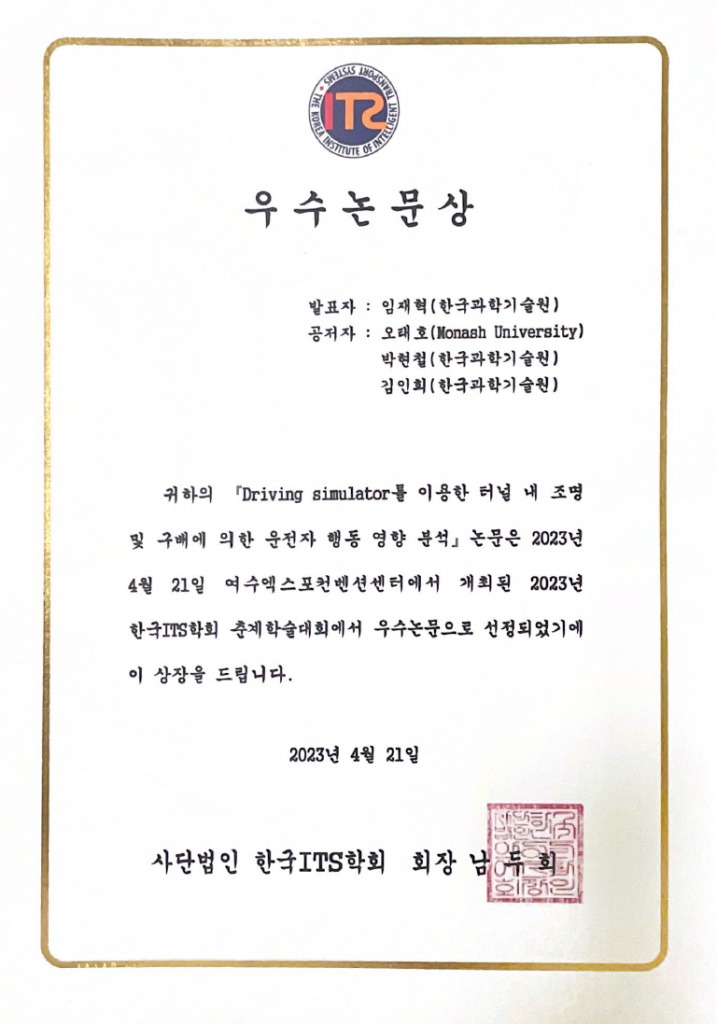 THE KOREA INSTITUTE OF INTELLIGENT TRANSPORT SYSTEMS
ITS
우수논문상
발표자 : 임재혁(한국과학기술원)
공저자 : 오태호(Monash University)
박현철(한국과학기술원)
김인희(한국과학기술원)
귀하의 『Driving simulator를 이용한 터널 내 조명
및 구배에 의한 운전자 행동 영향 분석』논문은 2023년
4월 21일 여수엑스포컨벤션센터에서 개최된 2023년
한국ITS학회 춘계학술대회에서 우수논문으로 선정되었기에
이 상장을 드립니다.
2023년 4월 21일
사단법인 한국ITS학회 회장 남두희